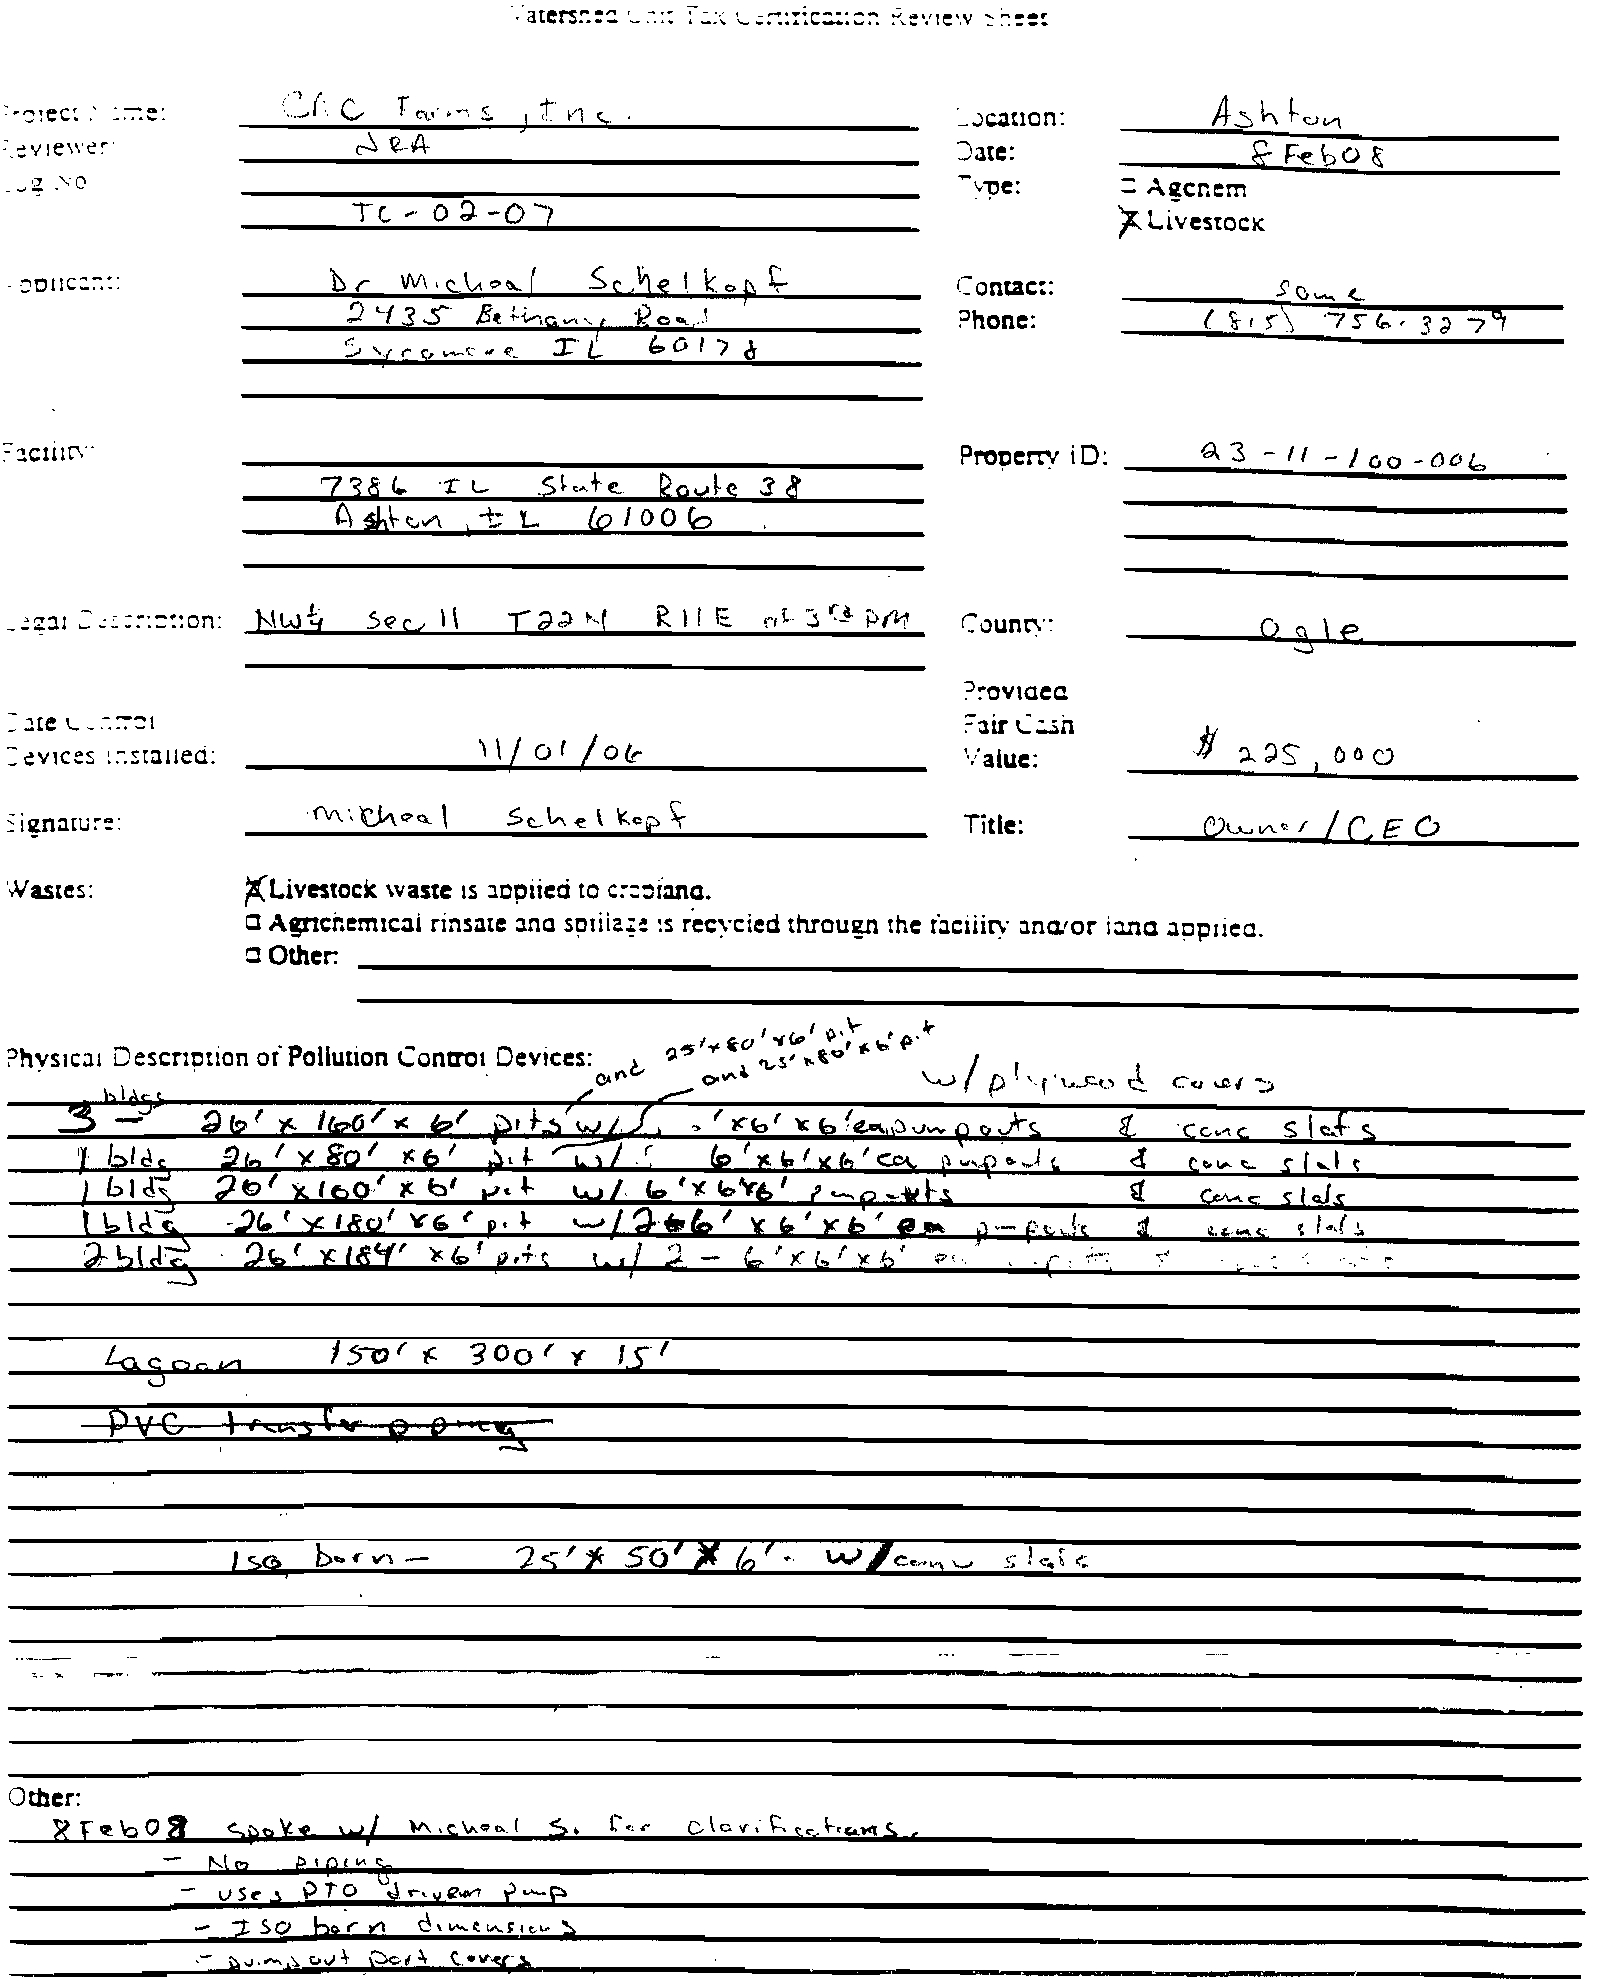 Watershed Unit Tax Certification Review Sheet
Project Name: CAC Farms, Inc. Location: Ashton
Reviewer: JRA Date: 8 Feb 08
Log No Type: Agchem
TC-02-07 X Livestock
Applicant: Dr Micheal Schelkopf Contact: same
2435 Bethany Road Phone: (815) 756-3279
Sycamore IL 60178
Facility: Property ID: 23-11-100-006
7386 IL State Route 38
Ashton, IL 61006
Legal Description: NW¼ Sec 11 T22N R11E of 3rd PM County: Ogle
Provided
Date Control Fair Cash
Devices Installed: 11/01/06 Value: $ 225,000
Signature: Micheal Schelkopf Title: Owner/CEO
Wastes: X Livestock waste is applied to cropland.
Agrichemical rinsate and spillage is recycled through the facility and/or land applied.
Other:
Physical Description of Pollution Control Devices:
and 25'x80'x6' pit
and 25'x80'x6' pit
w/ plywood covers
3 - bldgs 26' x 160' x 6' pits w/ 'x6'x6' ea pumpouts & conc slats
1 bldg 26' x 80' x 6' pit w/ 6'x6'x6' ea pumpouts & conc slats
1 bldg 26' x 160' x 6' pit w/ 6'x6'x6' pumpouts & conc slats
1 bldg 26' x 180' x 6' pit w/ 2-6' x 6' x 6' ea pumpouts & conc slats
2 bldg 26' x 184' x 6' pits w/ 2 - 6'x6'x6'
Lagoon 150' x 300' x 15'
PVC transfer piping
Iso barn - 25' x 50' x 6' - w/ conc slats
Other:
8 Feb 08 spoke w/ Micheal S. for clarifications.
- No piping
- uses PTO driven pump
- ISO barn dimensions
- pumpout port covers